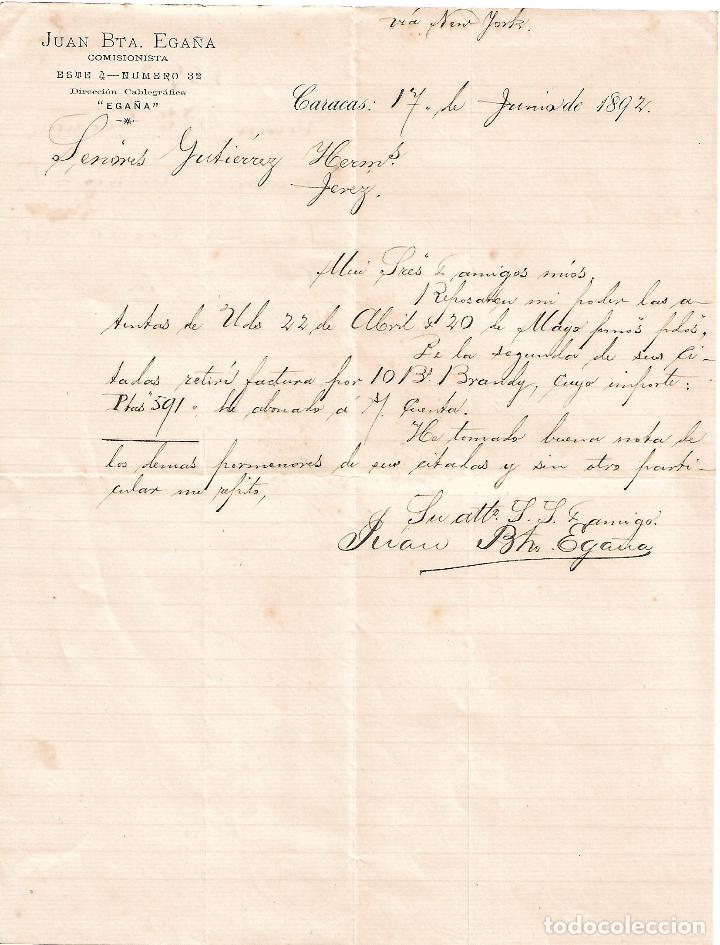 vía New York.
JUAN BTA. EGAÑA
COMISIONISTA
ESTE 4—NUMERO 32
Dirección Cablegráfica
"EGAÑA"
Caracas: 17 de Junio de 1892.
Señores Gutiérrez Hermos.
Jerez.
Mui Sres & amigos mios.
Reposan en mi poder las a-
tentas de Uds 22 de Abril & 20 de Mayo ppdos.
De la segunda de sus ci-
tadas retiré factura por 10 Bs Brandy, cuyo importe:
Ptas 591 he abonado á s/ cuenta.
He tomado buena nota de
los demas pormenores de sus citadas y sin otro parti-
cular me repito,
Su atto. S. S. & amigo.
Juan Bta. Egaña
todocoleccion